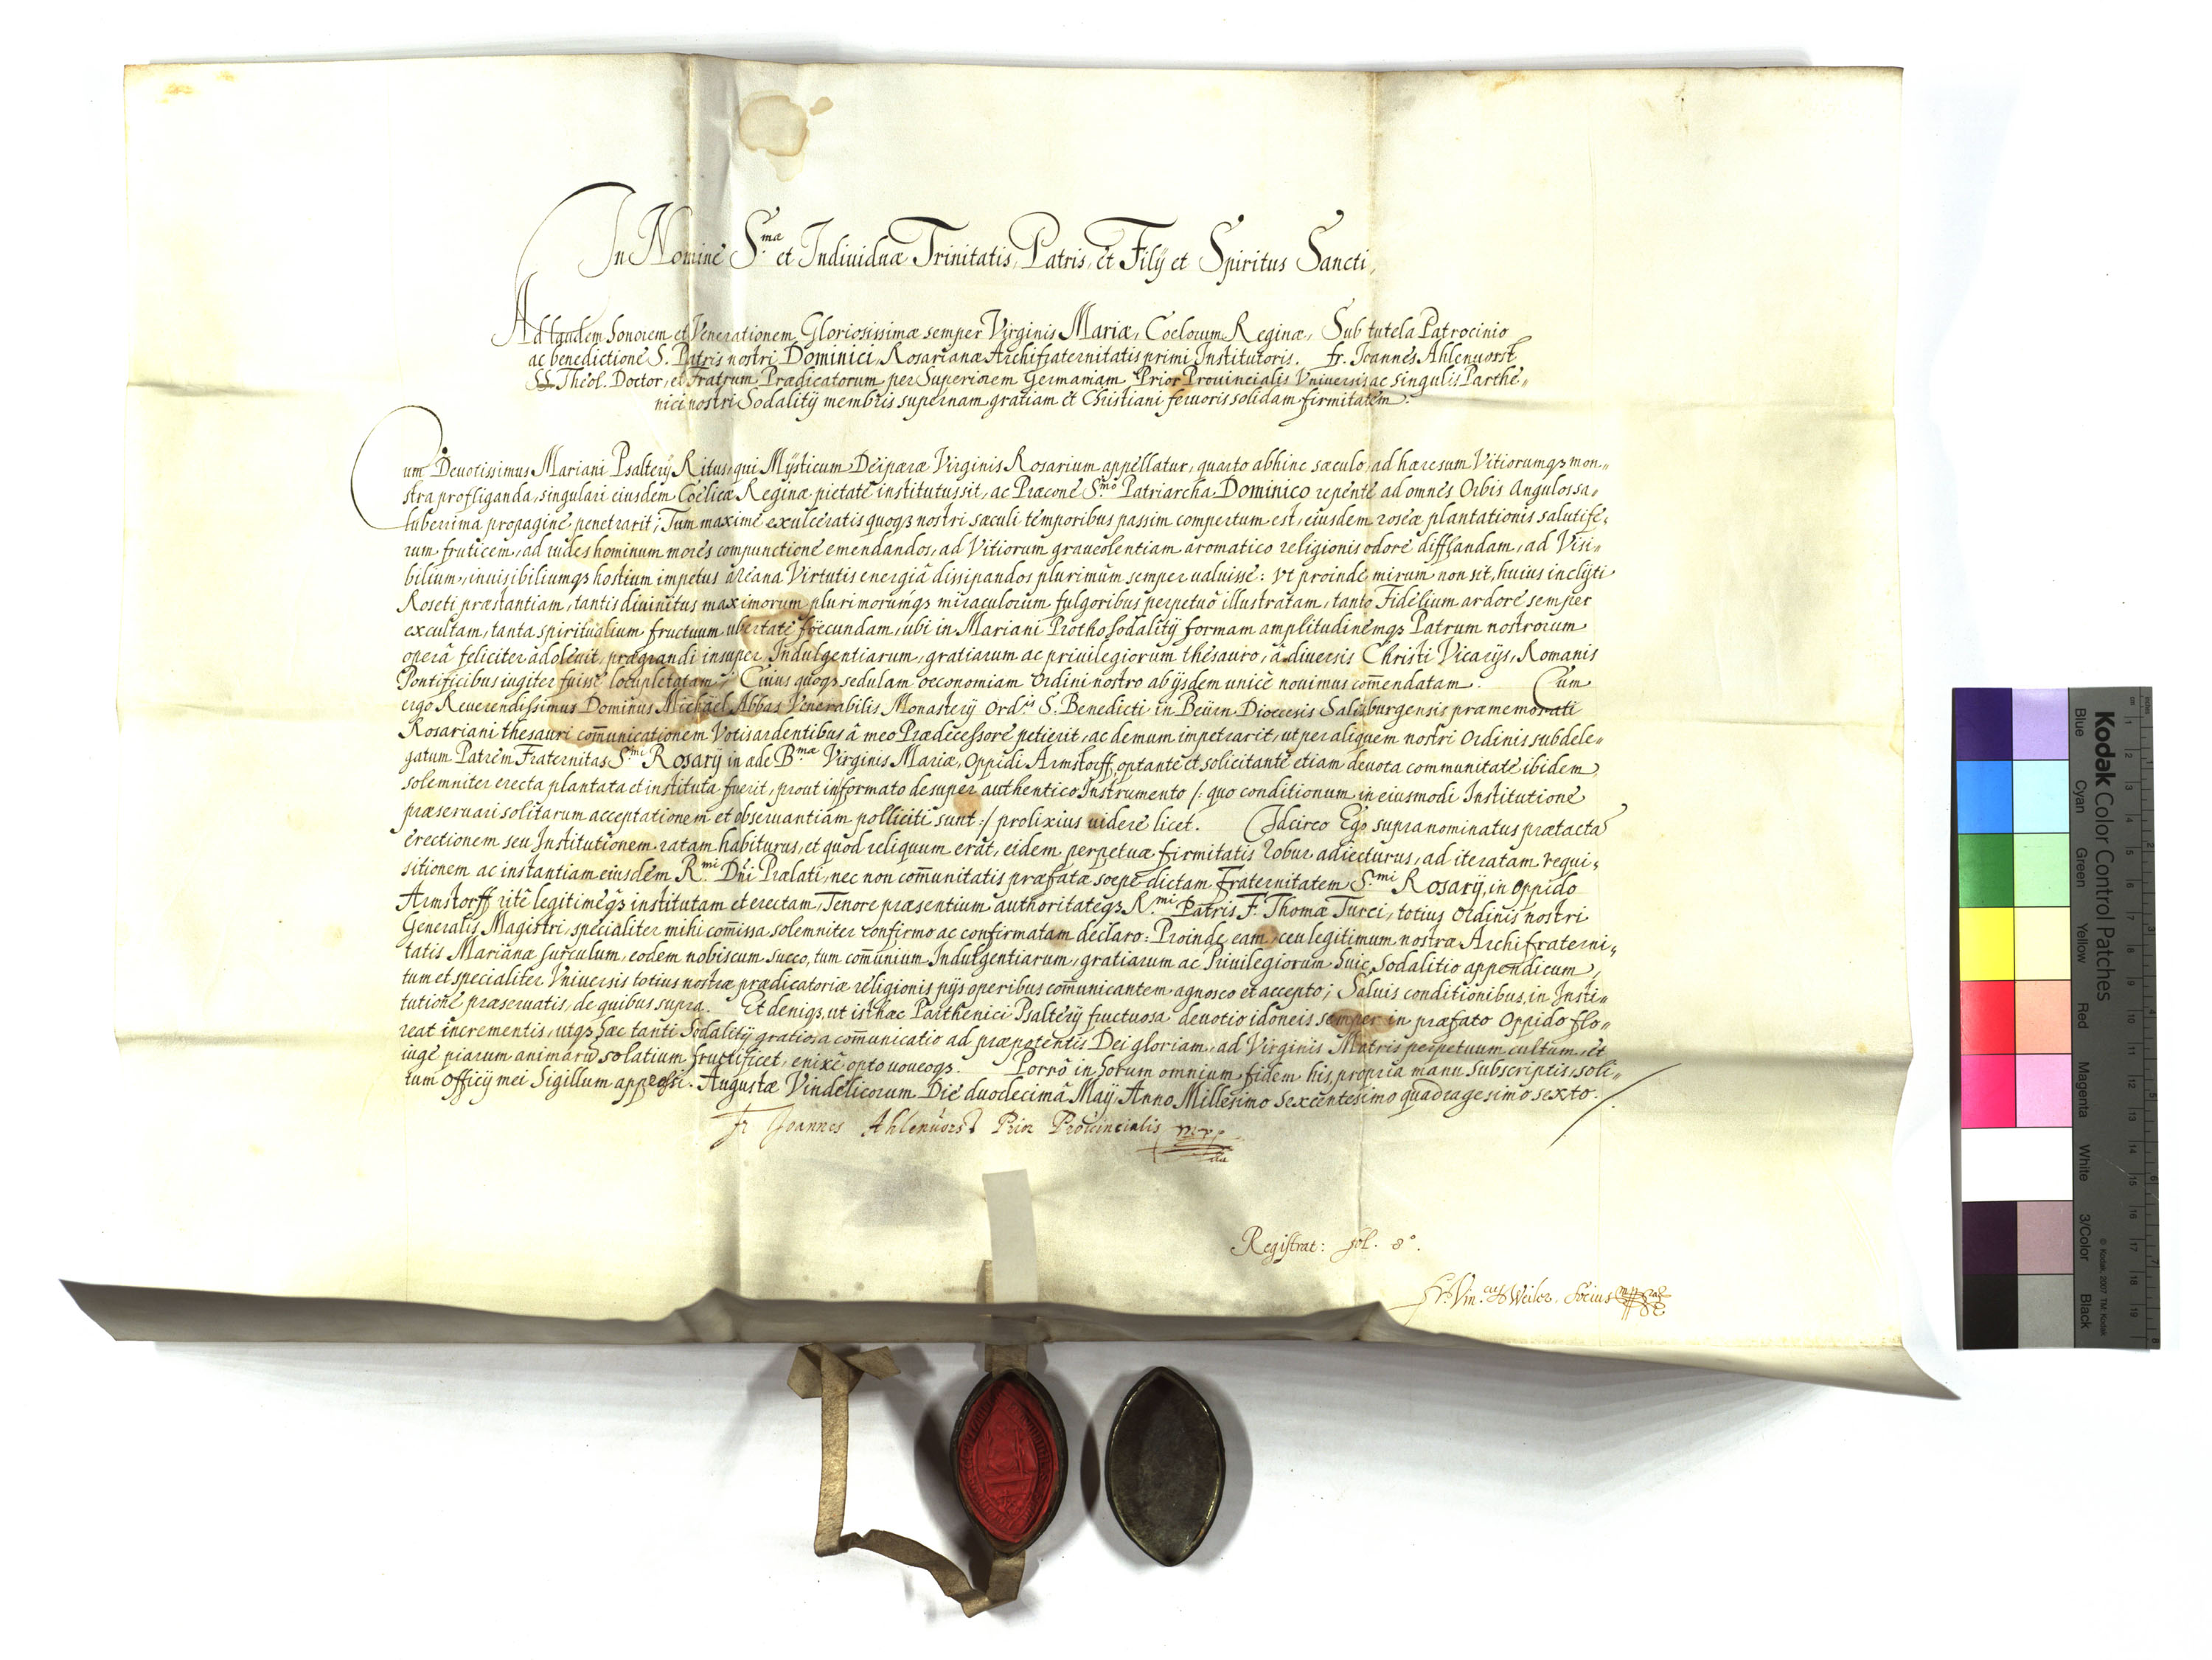 In Nomine S.ma et Indiuiduæ Trinitatis, Patris, et Filij et Spiritus Sancti,
Ad laudem honorem et Venerationem Gloriosissimæ semper Virginis Mariæ, Coelorum Reginæ, Sub tutela Patrocinio
ac benedictione S. Patris nostri Dominici Rosarianæ Archifraternitatis primi Institutoris. fr. Joannes Ahlenuorst
SS. Theol. Doctor, et Fratrum Prædicatorum per Superiorem Germaniam Prior Prouincialis Vniuersis ac singulis Parthe„
nici nostri Sodalitij membris supernam gratiam et Christiani feruoris solidam firmitatem.
Cum Deuotissimus Mariani Psalterij Ritus, qui Mysticum Deiparæ Virginis Rosarium appellatur, quarto abhinc sæculo, ad hæresum Vitiorumqȝ mon„
stra profliganda, singulari eiusdem Coelicæ Reginæ pietate institutus sit, ac Præcone S.mo Patriarcha Dominico repente ad omnes Orbis angulos sa„
luberrima propagine penetrarit; Tum maxime exulceratis quoqȝ nostri sæculi temporibus passim compertum est, eiusdem roseæ plantationis salutife„
rum fruticem, ad rudes hominum mores compunctione emendandos, ad Vitiorum graueolentiam aromatico religionis odore difflandam, ad Visi„
bilium, inuisibiliumqȝ hostium impetus arcana Virtutis energiâ dissipandos plurimùm semper ualuisse: Vt proinde mirum non sit, huius inclyti
Roseti præstantiam, tantis diuinitus maximorum plurimorumqȝ miraculorum fulgoribus perpetuò illustratam, tanto Fidelium ardore semper
excultam, tanta spiritualium fructuum ubertate foecundam, ubi in Mariani Protho sodalitij formam amplitudinemqȝ Patrum nostrorum
operâ feliciter adoleuit, prægrandi insuper Indulgentiarum, gratiarum ac priuilegiorum thesauro, à diuersis Christi Vicarijs, Romanis
Pontificibus iugiter fuisse locupletatam; Cuius quoqȝ sedulam oeconomiam Ordini nostro ab ijsdem unicè nouimus com̄endatam. Cum
ergo Reuerendissimus Dominus Michael Abbas Venerabilis Monasterij Ord.is S. Benedicti in Beürn Dioecesis Salisburgensis præmemorati
Rosariani thesauri com̄unicationem Votis ardentibus à meo Prædecessore petierit, ac demum impetrarit, ut per aliquem nostri Ordinis subdele„
gatum Patrem Fraternitas S.mi Rosarij in æde B.mæ Virginis Mariæ, Oppidi Armstorff, optante et solicitante etiam deuota communitate ibidem
solemniter erecta plantata et instituta fuerit, prout in formato desuper authentico Instrumento /: quo conditionum in eiusmodi Institutione
præseruari solitarum acceptationem et obseruantiam polliciti sunt :/ prolixius uidere licet. Idcirco Ego supranominatus prætacta
erectionem seu Institutionem ratam habiturus, et quod reliquum erat, eidem perpetuæ firmitatis robur adiecturus, ad iteratam requi„
sitionem ac instantiam eiusdem R.mi Dñi Prælati, nec non com̄unitatis præfatæ soepe dictam Fraternitatem S.mi Rosarij, in Oppido
Armstorff ritè legitimeqȝ institutam et erectam, Tenore præsentium authoritateqȝ R.mi Patris F. Thomæ Turci, totius Ordinis nostri
Generalis Magistri, specialiter mihi com̄issa solemniter confirmo ac confirmatam declaro: Proinde eam, ceu legitimum nostræ Archifraterni„
tatis Marianæ surculum, eodem nobiscum succo, tum com̄unium Indulgentiarum, gratiarum ac Priuilegiorum huic Sodalitio appendicum,
tum et specialiter Vniuersis totius nostræ prædicatoriæ religionis pijs operibus com̄unicantem agnosco et accepto; Saluis conditionibus, in Insti„
tutione præseruatis, de quibus supra. Et deniqȝ, ut isthæc Parthenici Psalterij fructuosa deuotio idoneis semper in præfato Oppido flo„
reat incrementis, utqȝ hæc tanti Sodalitij gratiosa com̄unicatio ad præpotentis Dei gloriam, ad Virginis Matris perpetuum cultum, et
iuge piarum animarū solatium fructificet, enixè opto uoueoqȝ. Porrò in horum omnium fidem his, propria manu subscriptis, soli„
tum Officij mei Sigillum appressi. Augustæ Vindelicorum Die duodecimâ Maij Anno Millesimo Sexcentesimo quadragesimo sexto.
fr Joannes Ahlenuorst Prior Prouincialis mp
Registrat: fol. 8°.
Fr. Vin.cus Weiler. Socius
Kodak Color Control Patches
Blue Cyan Green Yellow Red Magenta White 3/Color Black
© Kodak, 2007 TM: Kodak